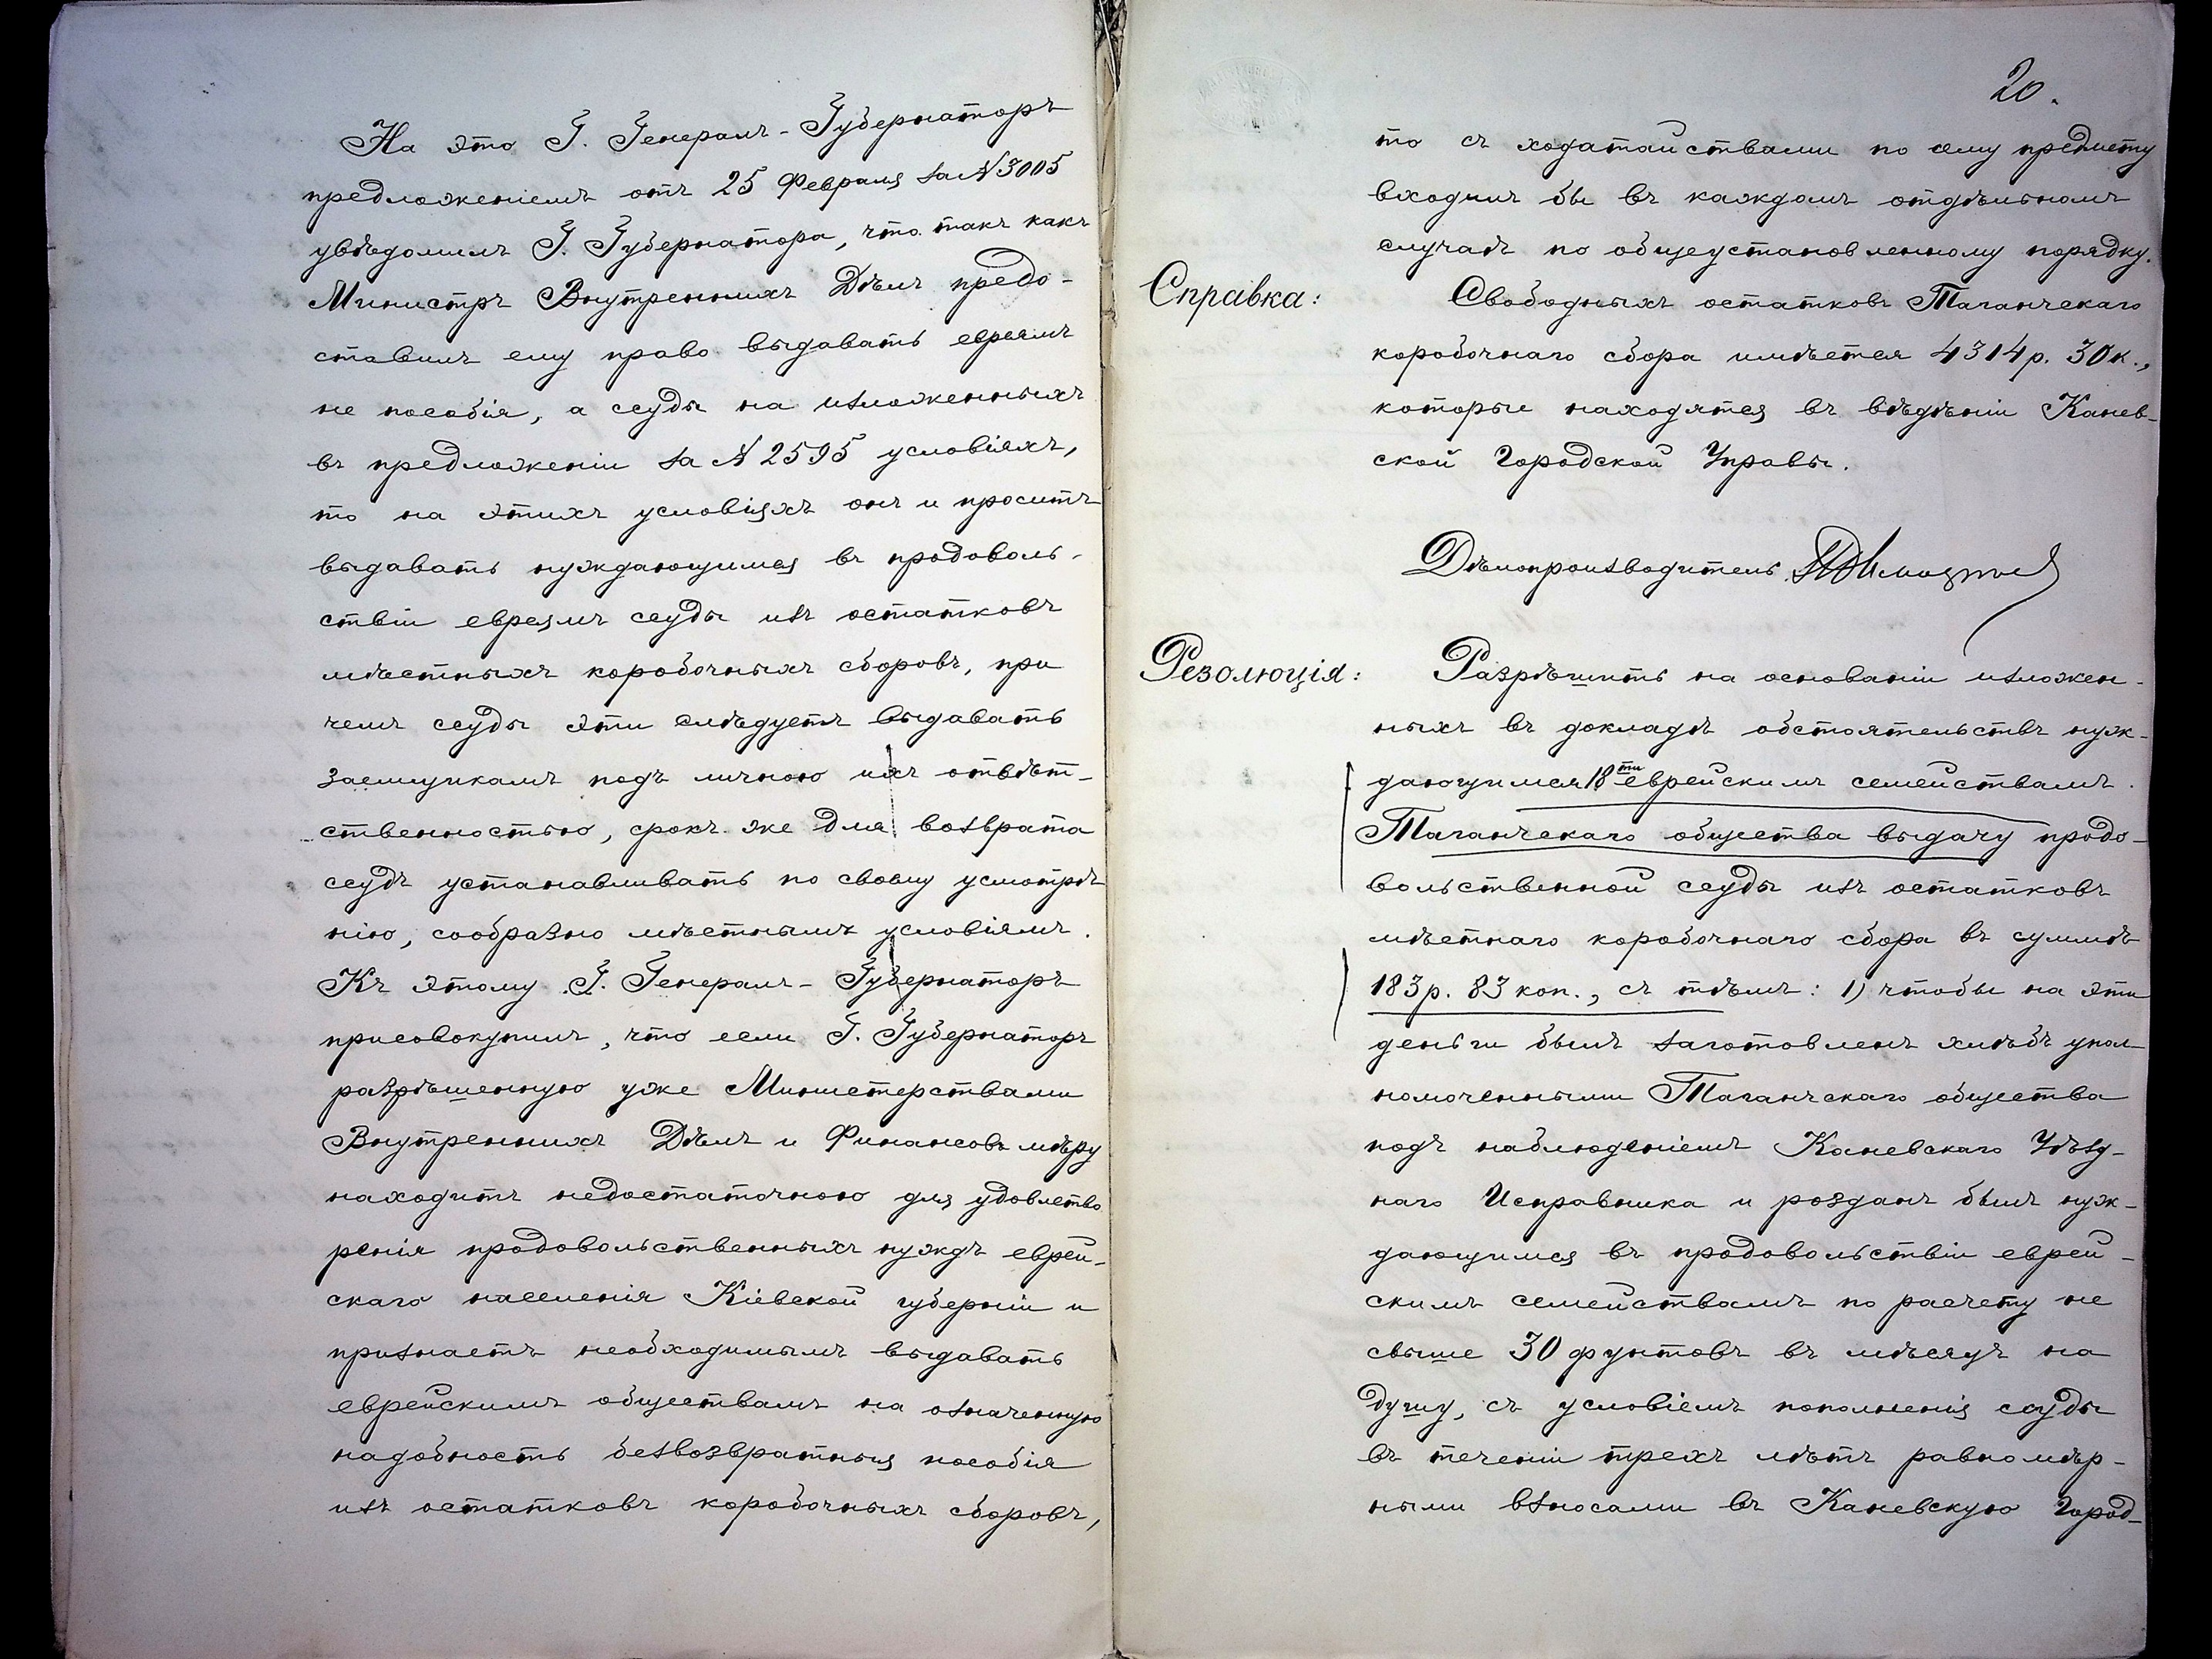 На это Г. Генералъ-Губернаторъ
предложеніемъ отъ 25 Февраля за № 3005
увѣдомилъ Г. Губернатора, что такъ какъ
Министръ Внутреннихъ Дѣлъ предо-
ставилъ ему право выдавать евреямъ
не пособія, а ссуды на изложенныхъ
въ предложеніи за № 2595 условіяхъ,
то на этихъ условіяхъ онъ и проситъ
выдавать нуждающимся въ продоволь-
ствіи евреямъ ссуды изъ остатковъ
мѣстныхъ коробочныхъ сборовъ, при
чемъ ссуды эти слѣдуетъ выдавать
заемщикамъ подъ личною ихъ отвѣт-
ственностью, срокъ же для возврата
ссудъ устанавливать по своему усмотрѣ
нію, сообразно мѣстнымъ условіямъ.
Къ этому Г. Генералъ-Губернаторъ
присовокупилъ, что если Г. Губернаторъ
разрѣшенную уже Министерствами
Внутреннихъ Дѣлъ и Финансовъ мѣру
находитъ недостаточною для удовлетво
ренія продовольственныхъ нуждъ еврей-
скаго населенія Кіевской губерніи и
признаетъ необходимымъ выдавать
еврейскимъ обществамъ на означенную
надобность безвозвратныя пособія
изъ остатковъ коробочныхъ сборовъ,
20.
то съ ходатайствами по сему предмету
входилъ бы въ каждомъ отдѣльномъ
случаѣ по общеустановленному порядку.
Справка: Свободныхъ остатковъ Таганчскаго
коробочнаго сбора имѣется 4314 р. 30 к.,
которые находятся въ вѣдѣніи Канев-
ской Городской Управы.
Дѣлопроизводитель
Резолюція: Разрѣшить на основаніи изложен-
ныхъ въ докладѣ обстоятельствъ нуж-
дающимся 18ти еврейскимъ семействамъ
Таганчскаго общества выдачу продо-
вольственной ссуды изъ остатковъ
мѣстнаго коробочнаго сбора въ суммѣ
183 р. 83 коп., съ тѣмъ: 1) чтобы на эти
деньги былъ заготовленъ хлѣбъ упол-
номоченными Таганчскаго общества
подъ наблюденіемъ Каневскаго Уѣзд-
наго Исправника и розданъ былъ нуж-
дающимся въ продовольствіи еврей-
скимъ семействамъ по расчету не
свыше 30 фунтовъ въ мѣсяцъ на
душу, съ условіемъ пополненія ссуды
въ теченіи трехъ лѣтъ равномѣр-
ными взносами въ Каневскую Город-